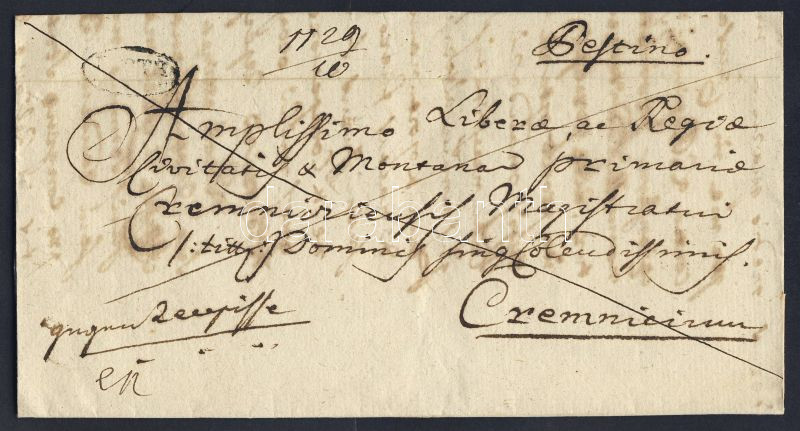 1129
10
Pestino.
Amplissimo Liberæ, ac Regiæ
Civitatis & Montanæ primariæ
Cremniciensis Magistratui
/: titt: / Dominis sing Colendissimis.
Cremnicium
gegen Recepisse
darabanth